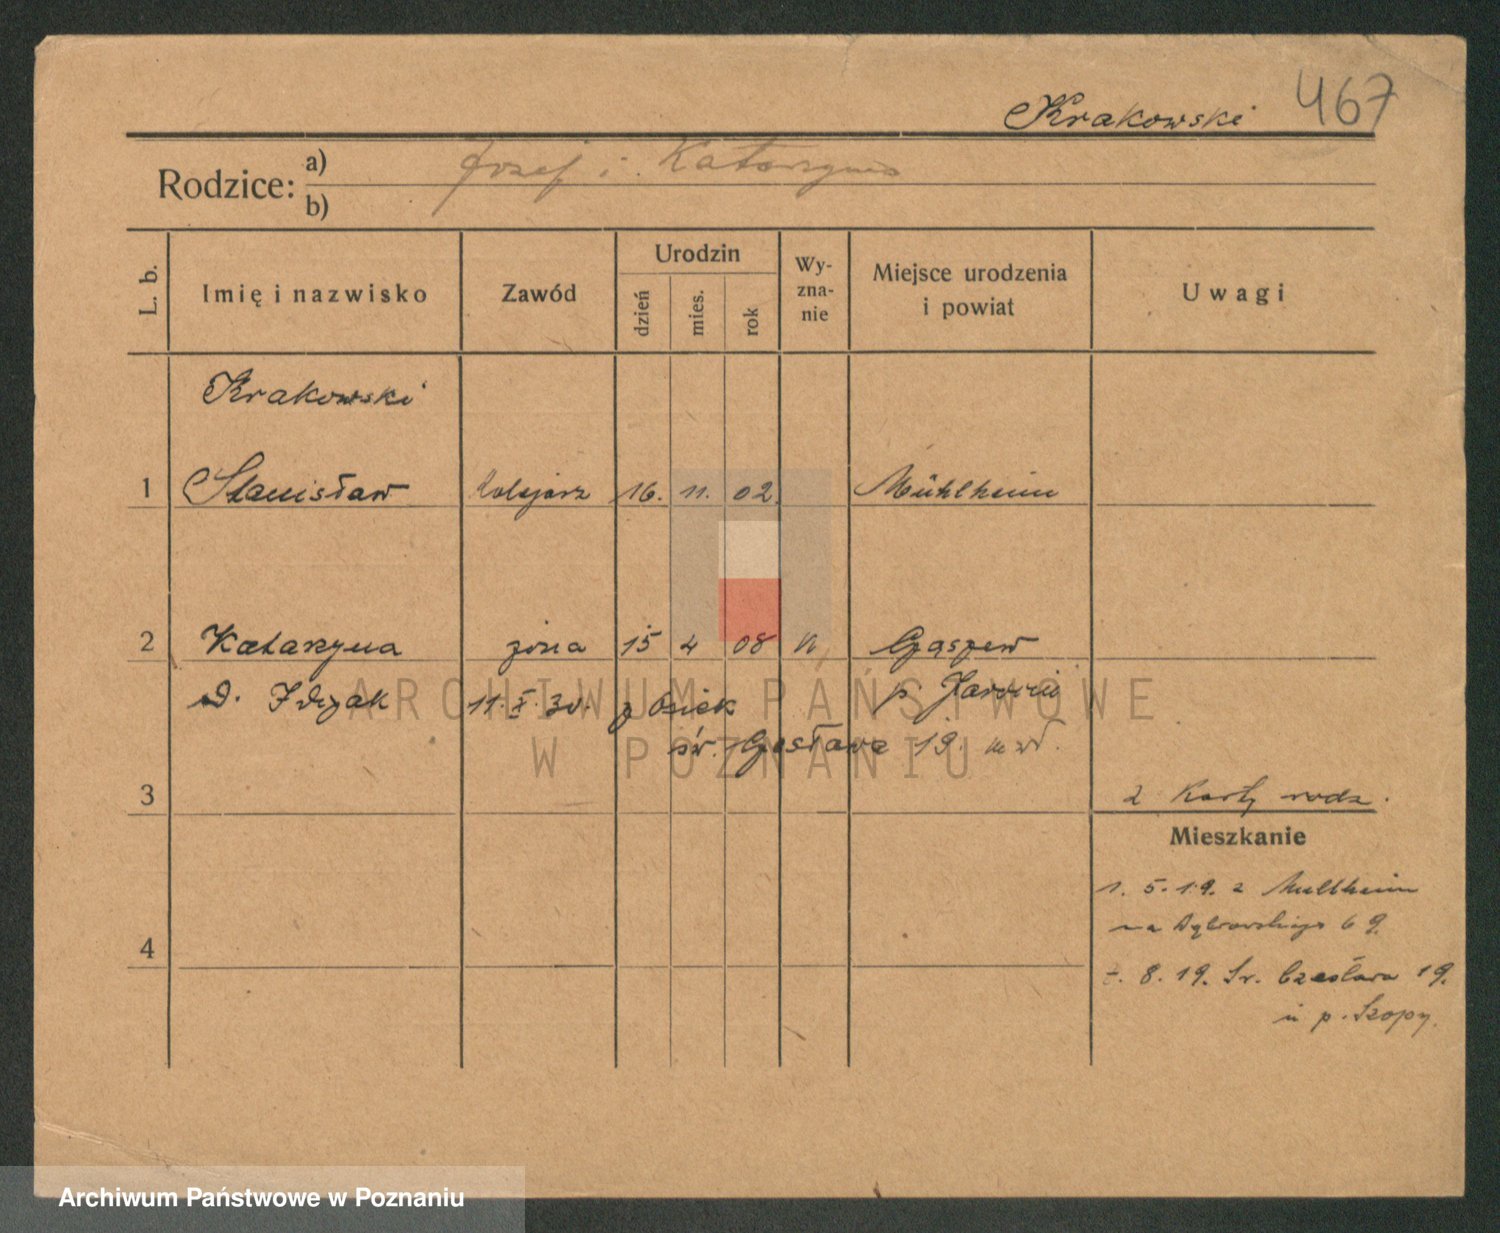 Krakowski 467
Rodzice: a) Józef i Katarzyna
b)
L. b. Imię i nazwisko Zawód Urodzin dzień mies. rok Wy-zna-nie Miejsce urodzenia i powiat Uwagi
Krakowski
1 Stanisław Kolejarz 16. 11. 02. Mühlheim
2 Katarzyna żona 15 4 08 Czaszew
d. Idzak 11. X. 30. z Osiek p. Jarocin
św. Czesława 19.
3 2 Karty rodz.
Mieszkanie
1. 5. 19. z Mullheim
na Dąbrowskiego 69.
4
8. 19. Św. Czesława 19.
u p. Szopy.
ARCHIWUM PAŃSTWOWE
W POZNANIU
Archiwum Państwowe w Poznaniu